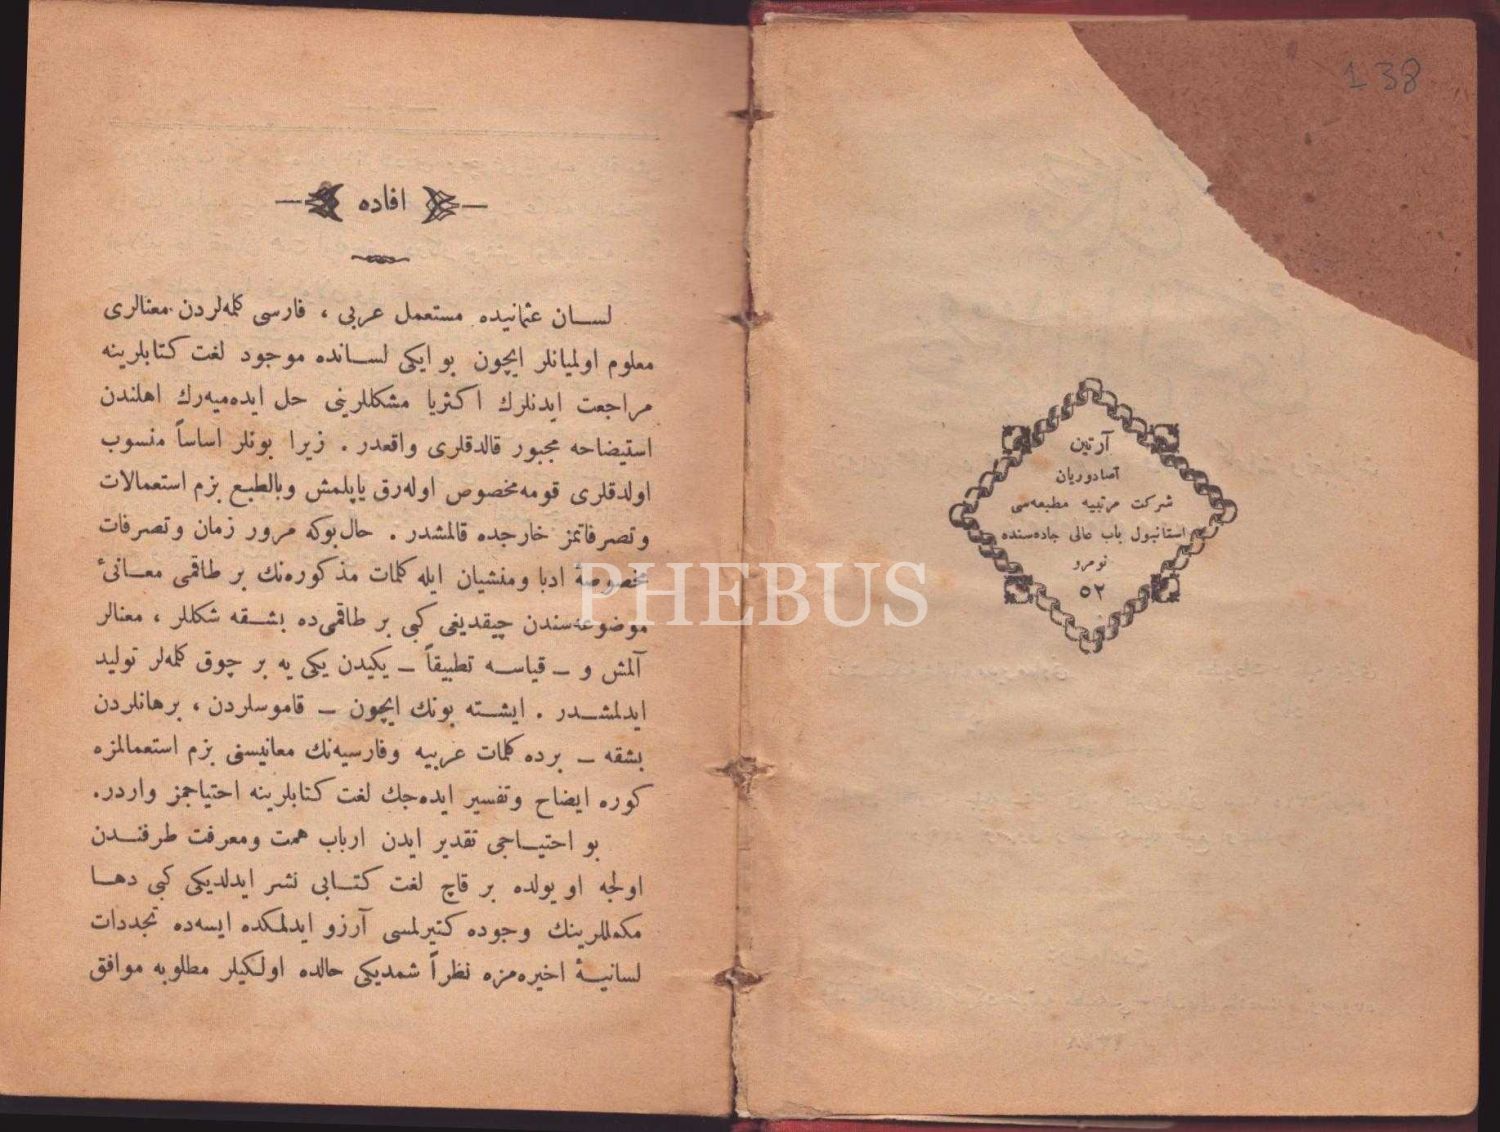 138
آرتين
آصادوريان
شركت مرتبيه مطبعه‌سى
استانبول باب عالى جاده‌سنده
نومرو
٥٢
افاده
لسان عثمانيده مستعمل عربى ، فارسى كلمه‌لردن معنالرى
معلوم اولميانلر ايچون بو ايكى لسانده موجود لغت كتابلرينه
مراجعت ايدنلرك اكثريا مشكللرينى حل ايده‌ميه‌رك اهلندن
استيضاحه مجبور قالدقلرى واقعدر . زيرا بونلر اساساً منسوب
اولدقلرى قومه مخصوص اوله‌رق ياپلمش وبالطبع بزم استعمالات
وتصرفاتمز خارجده قالمشدر . حال‌بوكه مرور زمان وتصرفات
مخصوصهٔ ادبا ومنشيان ايله كلمات مذكوره‌نك بر طاقمى معانئ
موضوعه‌سندن چيقديغى كبى بر طاقمى‌ده بشقه شكللر ، معنالر
آلمش و ــ قياسه تطبيقاً ــ يكيدن يكى يه بر چوق كلمه‌لر توليد
ايدلمشدر . ايشته بونك ايچون ــ قاموسلردن ، برهانلردن
بشقه ــ برده كلمات عربيه وفارسيه‌نك معانيسنى بزم استعمالمزه
كوره ايضاح وتفسير ايده‌جك لغت كتابلرينه احتياجمز واردر.
بو احتياجى تقدير ايدن ارباب همت ومعرفت طرفندن
اولجه او يولده بر قاچ لغت كتابى نشر ايدلديكى كبى دها
مكمللرينك وجوده كتيرلمسى آرزو ايدلمكده ايسه‌ده تجددات
لسانيهٔ اخيره‌مزه نظراً شمديكى حالده اولكيلر مطلوبه موافق
PHEBUS